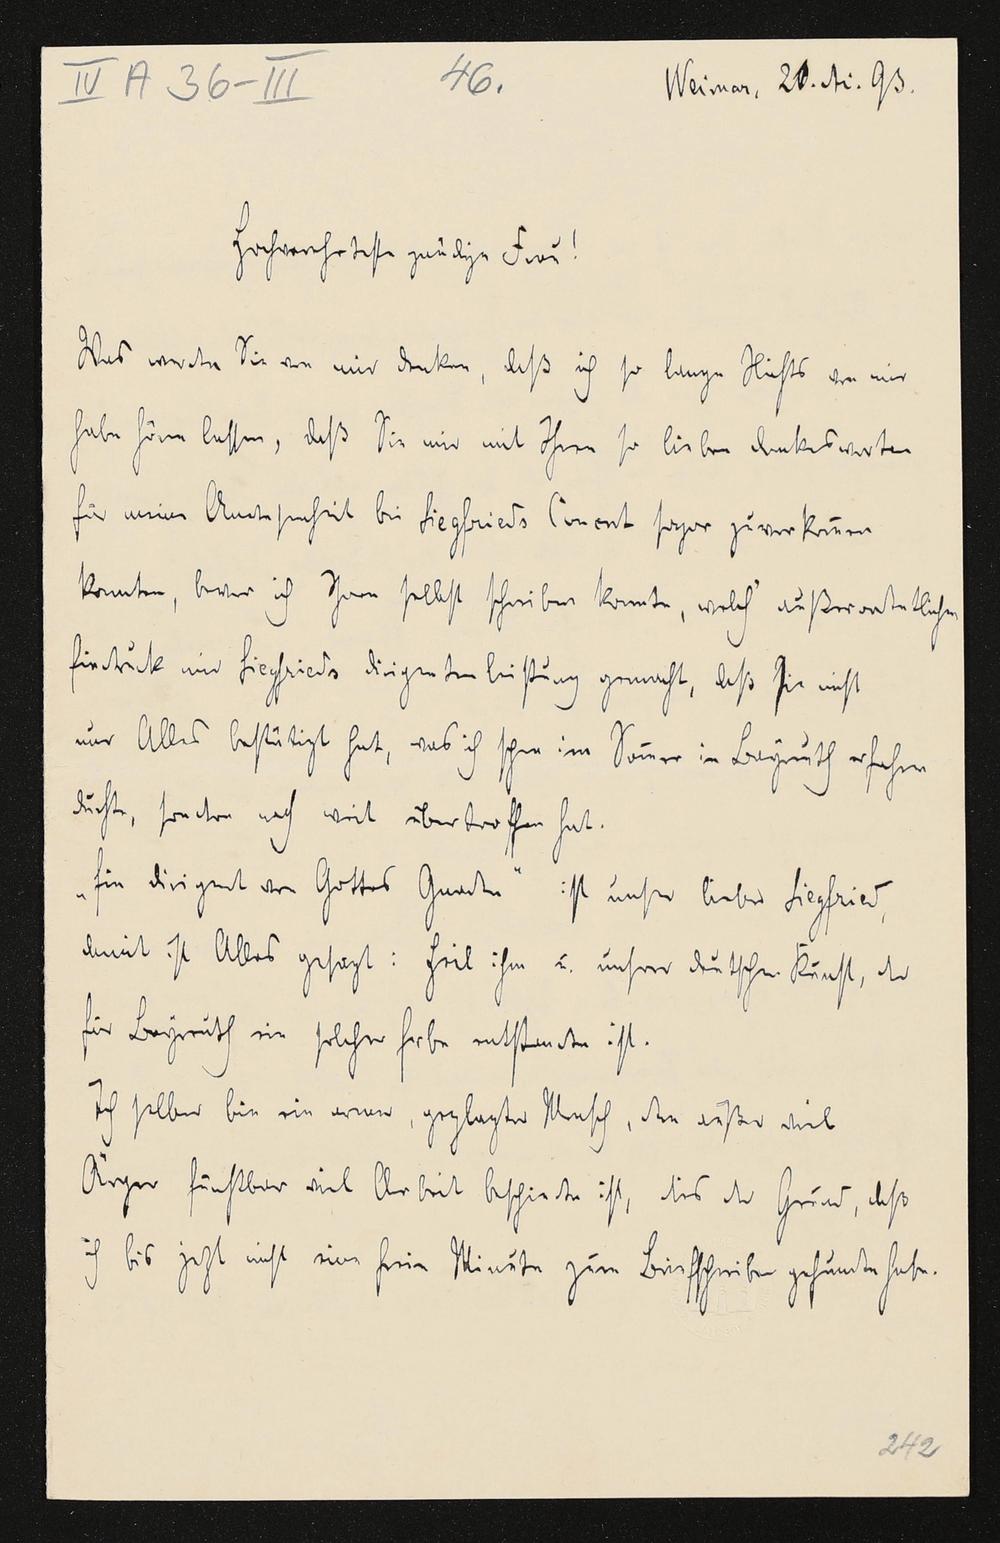 IV A 36-III 46. Weimar, 21. XI. 93.
Hochverehrteste gnädige Frau!
Was werden Sie von mir denken, daß ich so lange Nichts von mir
habe hören lassen, daß Sie mir mit Ihren so lieben Dankesworten
für meine Anwesenheit bei Siegfrieds Concert sogar zuvorkom̅en
konnten, bevor ich Ihnen selbst schreiben konnte, welch' außerordentlichen
Eindruck mir Siegfrieds Dirigentenleistung gemacht, daß sie nicht
nur Alles bestätigt hat, was ich schon im Som̅er in Bayreuth erfahren
durfte, sondern noch weit übertroffen hat.
„Ein Dirigent von Gottes Gnaden“ ist unser lieber Siegfried,
damit ist Alles gesagt: Heil ihm u. unsrer deutschen Kunst, der
für Bayreuth ein solcher Erbe entstanden ist.
Ich selber bin ein armer, geplagter Mensch, dem außer viel
Ärger furchtbar viel Arbeit beschieden ist, dies der Grund, daß
ich bis jetzt nicht eine freie Minute zum Briefschreiben gefunden habe.
242